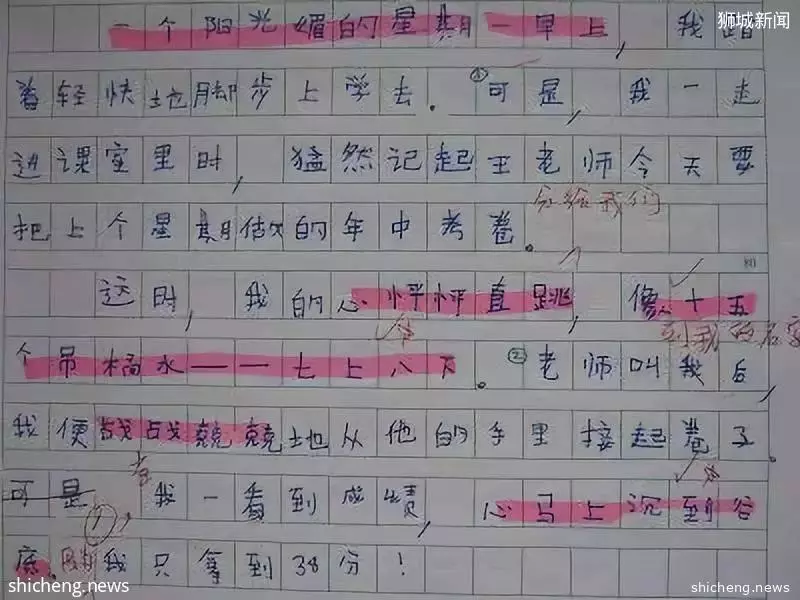 狮城新闻
一个阳光媚的星期一早上，我踏
着轻快地脚步上学去。①可是，我一走
进课室里时，猛然记起王老师今天要
分给我们
把上个星期做的年中考卷。
80
这时，我的心怦怦直跳，像十五
到我的名字
个吊桶水——七上八下。②老师叫我后，
我便战战兢兢地从他的手里接起卷子。
可是我一看到成绩，心马上沉到谷
底。我只拿到38分！
shicheng.news
shicheng.news